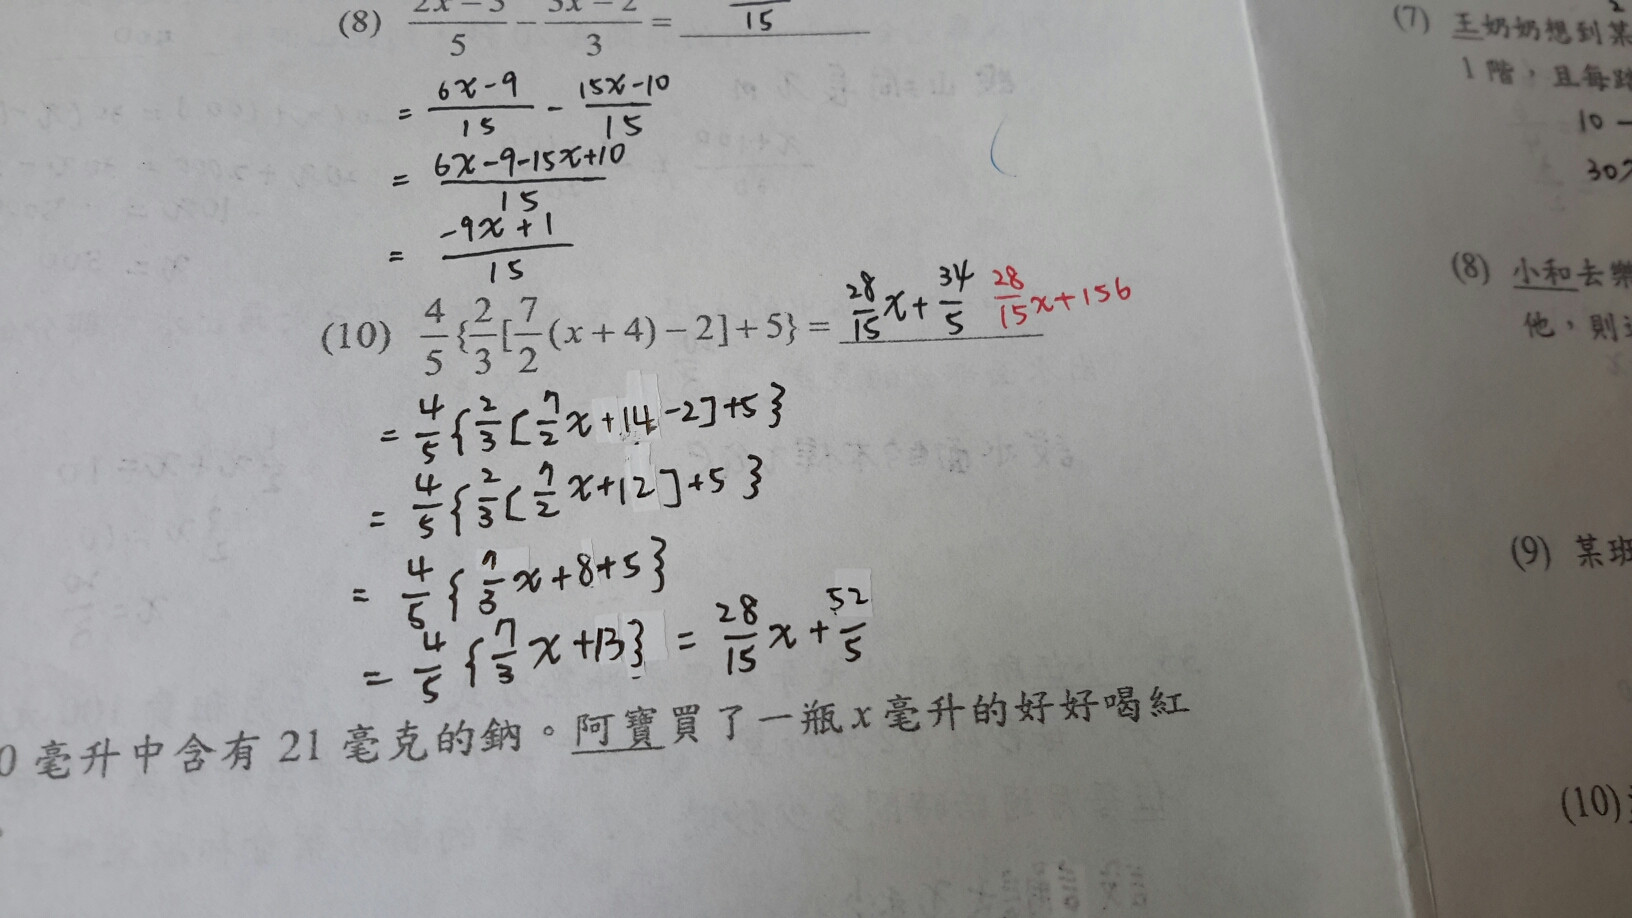 (8) \frac{2x-3}{5} - \frac{5x-2}{3} = \frac{}{15}
= \frac{6x-9}{15} - \frac{15x-10}{15}
= \frac{6x-9-15x+10}{15}
= \frac{-9x+1}{15}
(10) \frac{4}{5}{\frac{2}{3}[\frac{7}{2}(x+4)-2]+5} = \frac{28}{15}x+\frac{34}{5} \frac{28}{15}x+156
= \frac{4}{5}{\frac{2}{3}[\frac{7}{2}x+14-2]+5}
= \frac{4}{5}{\frac{2}{3}[\frac{7}{2}x+12]+5}
= \frac{4}{5}{\frac{7}{3}x+8+5}
= \frac{4}{5}{\frac{7}{3}x+13} = \frac{28}{15}x+\frac{52}{5}
0 毫升中含有 21 毫克的鈉。阿寶買了一瓶 x 毫升的好好喝紅
(7) 王奶奶想到某
1 階，且每
10 -
30
(8) 小和去
他，則
(9) 某班
(10)